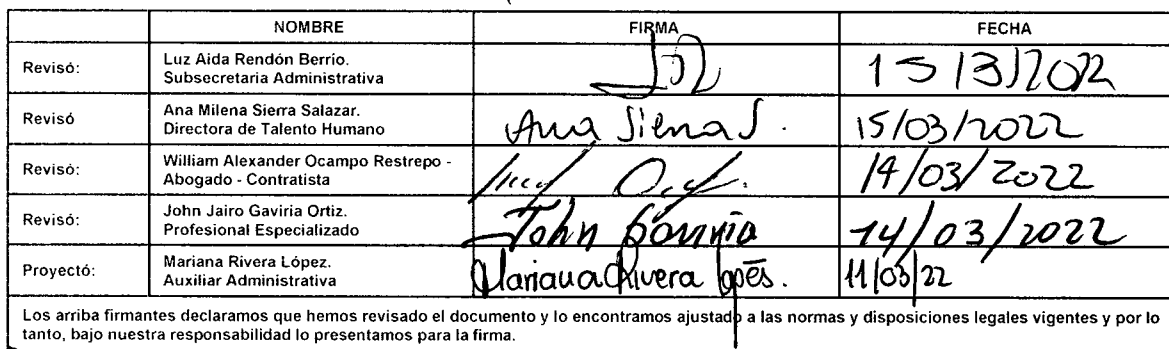 NOMBRE FIRMA FECHA
Revisó: Luz Aida Rendón Berrío.
Subsecretaria Administrativa
15/3/2022
Revisó Ana Milena Sierra Salazar.
Directora de Talento Humano
Ana Sierra S.
15/03/2022
Revisó: William Alexander Ocampo Restrepo -
Abogado - Contratista
14/03/2022
Revisó: John Jairo Gaviria Ortiz.
Profesional Especializado
John Gaviria
14/03/2022
Proyectó: Mariana Rivera López.
Auxiliar Administrativa
Mariana Rivera López.
11/03/22
Los arriba firmantes declaramos que hemos revisado el documento y lo encontramos ajustado a las normas y disposiciones legales vigentes y por lo
tanto, bajo nuestra responsabilidad lo presentamos para la firma.